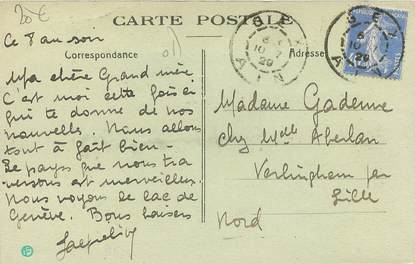 20 €
CARTE POSTALE
Ce 8 au soir
Correspondance
Adresse
GEX
AIN
GEX
AIN
Ma chère Grand'mère,
C'est moi cette fois ci
qui te donne de nos
nouvelles. Nous allons
tout à fait bien -
Le pays que nous tra
versons est merveilleux.
Nous voyons le lac de
Genève. Bons baisers
Jacqueline
Madame Gadenne
chez Melle
Verlinghem par
Lille
Nord